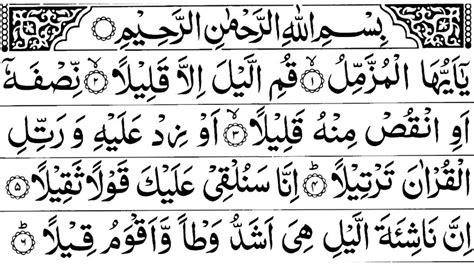 بِسْمِ اللهِ الرَّحْمٰنِ الرَّحِيْمِ
يٰۤاَيُّهَا الْمُزَّمِّلُ ۙ﴿۱﴾ قُمِ الَّيْلَ اِلَّا قَلِيْلًا ۙ﴿۲﴾ نِّصْفَهٗۤ
اَوِ انْقُصْ مِنْهُ قَلِيْلًا ۙ﴿۳﴾ اَوْ زِدْ عَلَيْهِ وَ رَتِّلِ
الْقُرْاٰنَ تَرْتِيْلًا ؕ﴿۴﴾ اِنَّا سَنُلْقِيْ عَلَيْكَ قَوْلًا ثَقِيْلًا ﴿۵﴾
اِنَّ نَاشِئَةَ الَّيْلِ هِيَ اَشَدُّ وَطْاً وَّاَقْوَمُ قِيْلًا ؕ﴿۶﴾